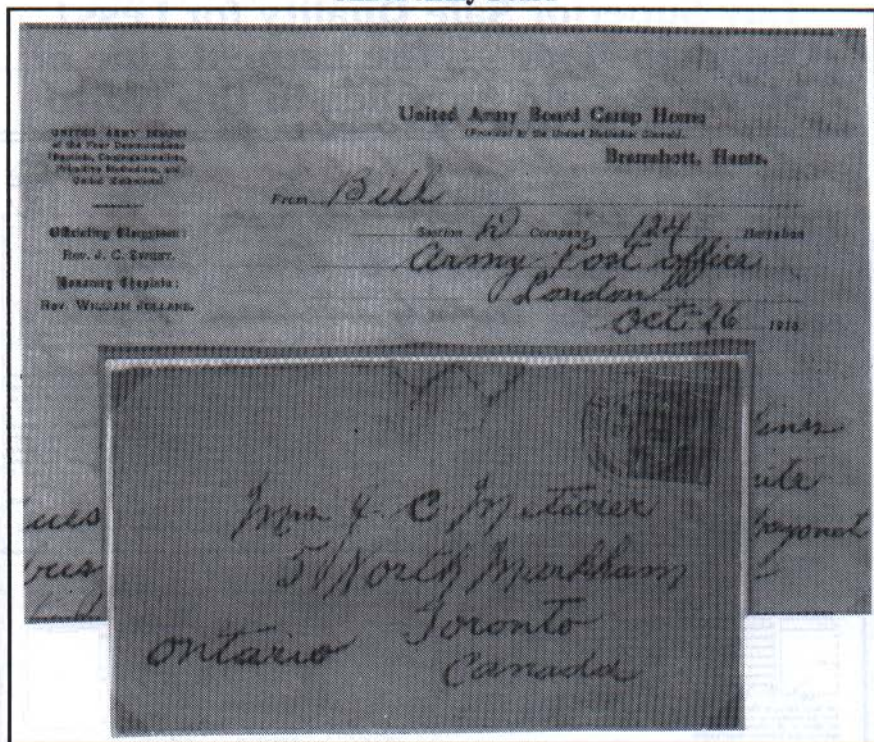 United Army Board Camp Home
(Provided by the United Methodist Church).
Bramshott, Hants.
UNITED ARMY BOARD
of the Four Denominations
(Baptists, Congregationalists,
Primitive Methodists, and
United Methodists).
Officiating Clergyman:
Rev. J. C.
Honorary Chaplain:
Rev. WILLIAM
From Bill
Section D Company 124 Battalion
Army Post office
London
Oct-26 1916
Mrs J. C Metivier
51 North Markham
Toronto
Ontario
Canada
bayonet